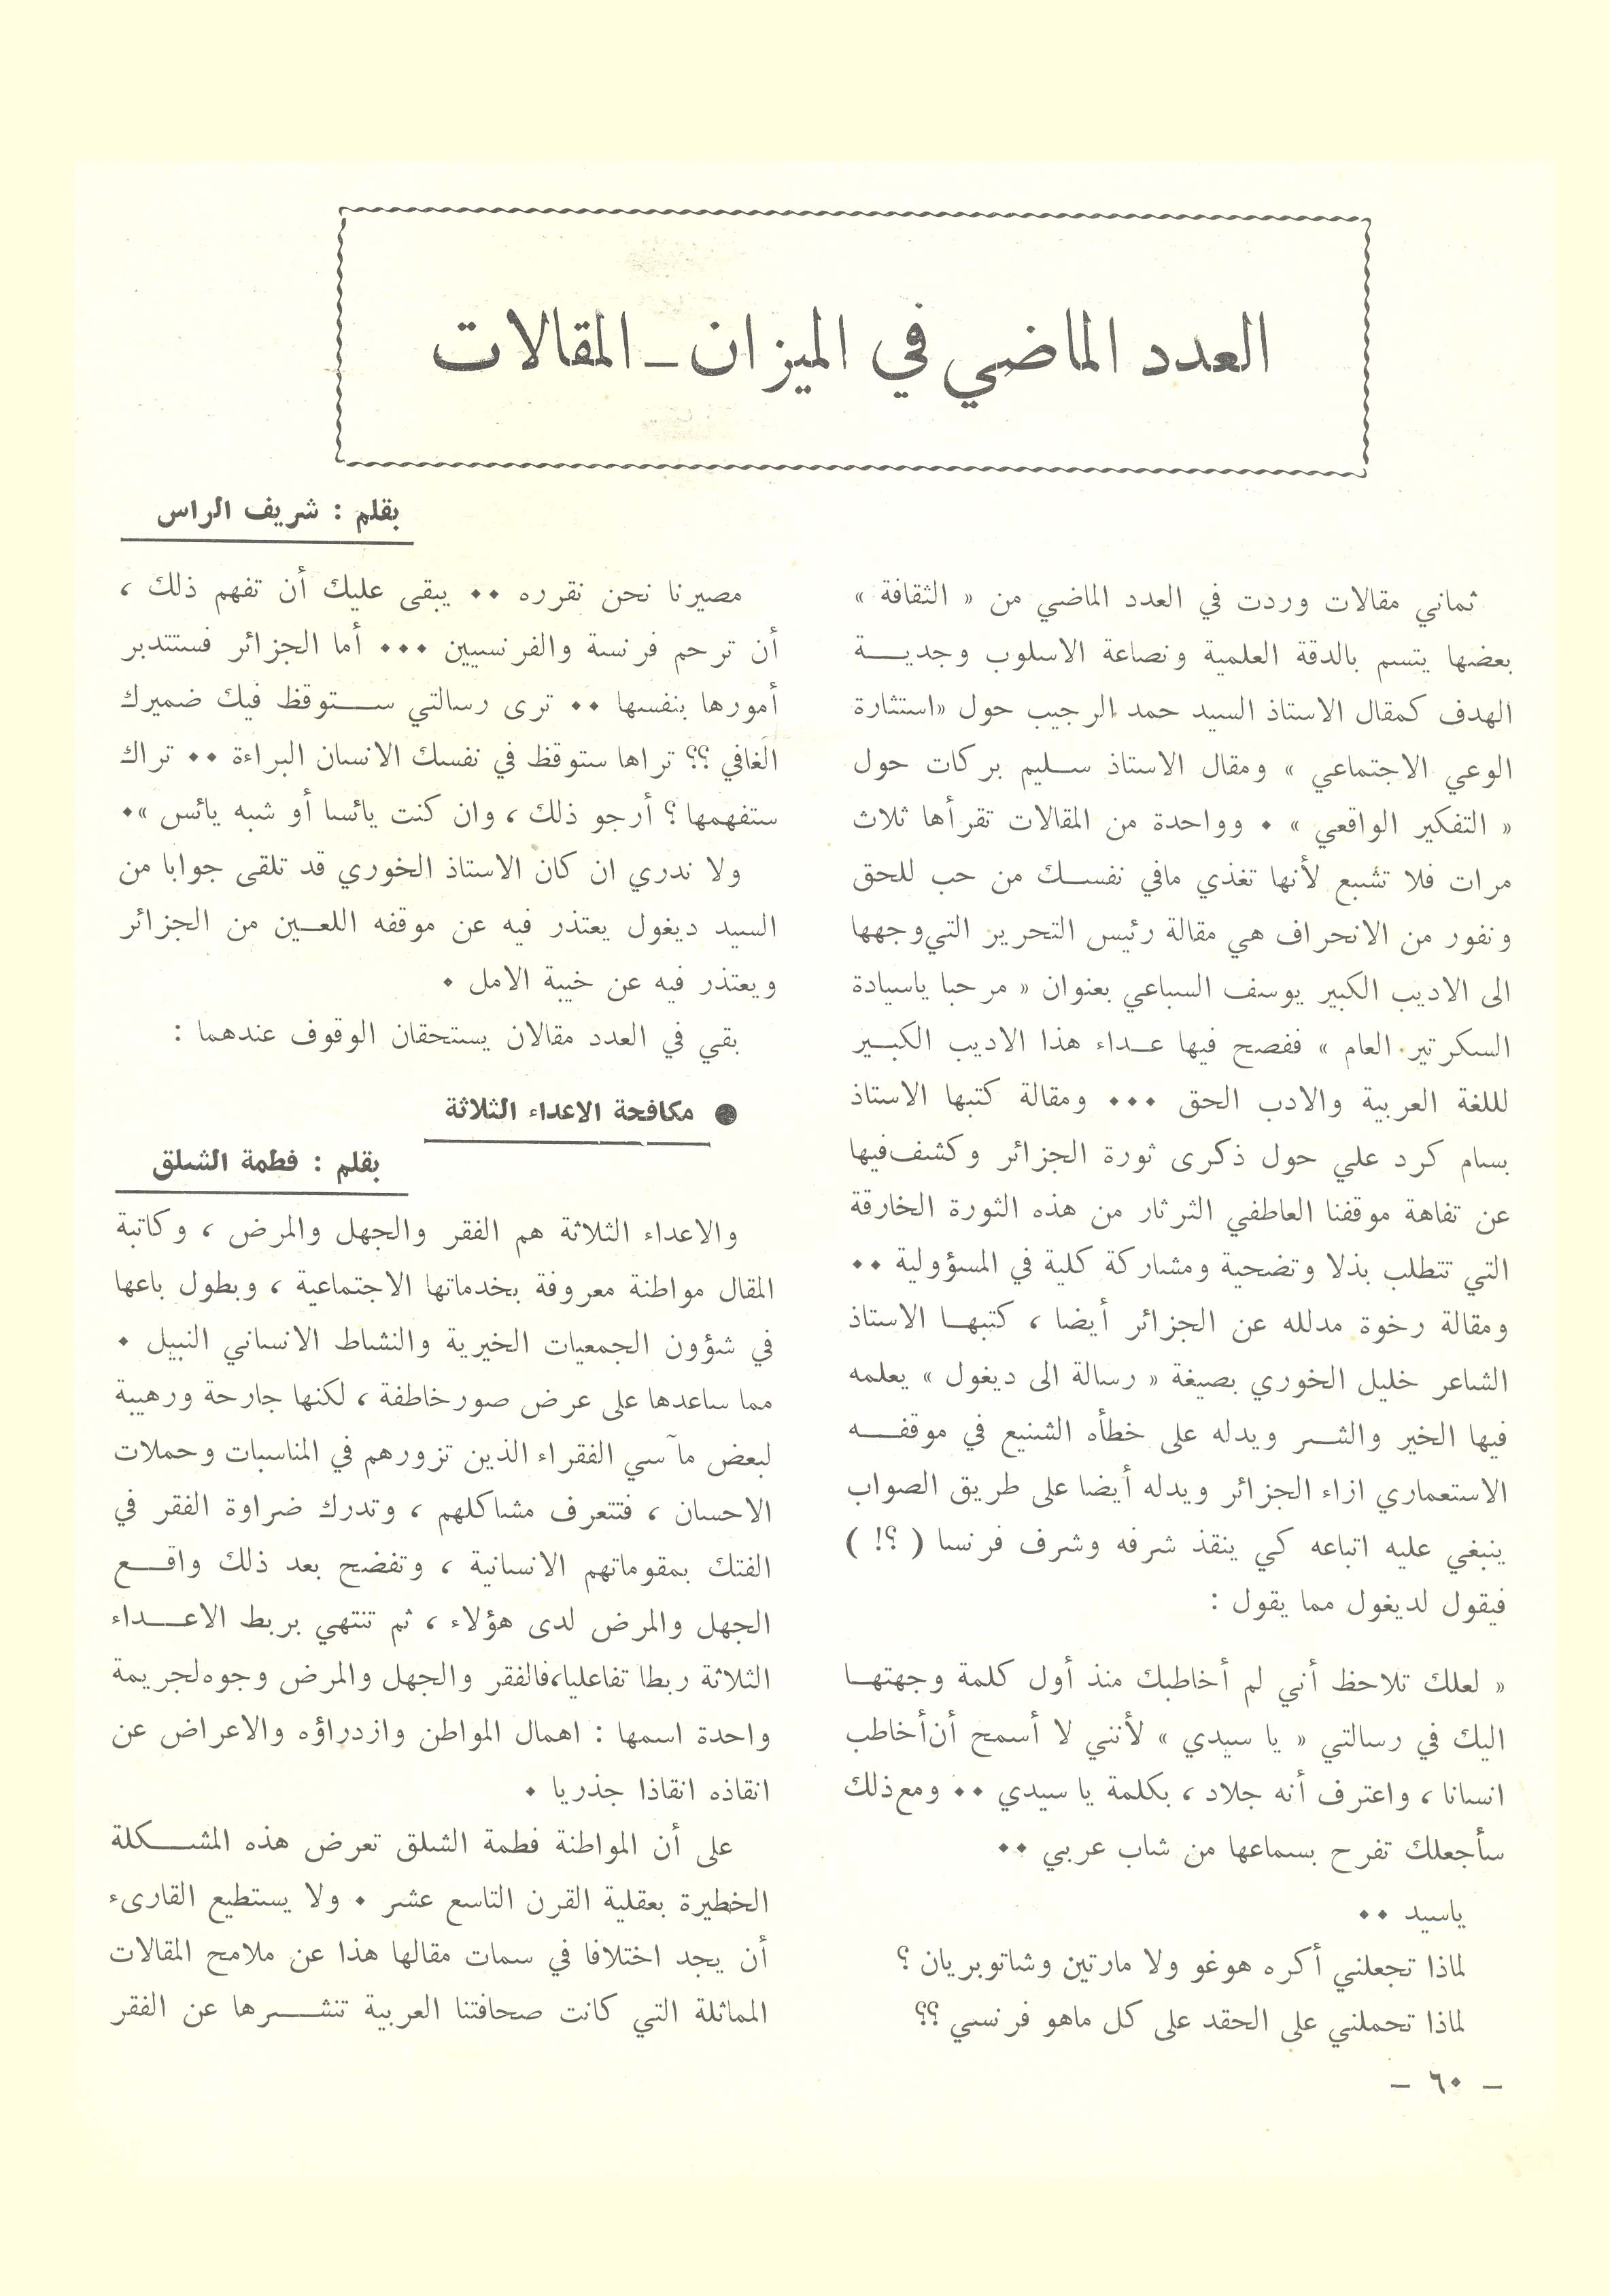 العدد الماضي في الميزان ـ المقالات
بقلم : شريف الراس
ثماني مقالات وردت في العدد الماضي من « الثقافة »
بعضها يتسم بالدقة العلمية ونصاعة الاسلوب وجديـــة
الهدف كمقال الاستاذ السيد حمد الرجيب حول «استثارة
الوعي الاجتماعي » ومقال الاستاذ سـليم بركات حول
« التفكير الواقعي » ٠ وواحدة من المقالات تقرأها ثلاث
مرات فلا تشبع لأنها تغذي مافي نفســك من حب للحق
ونفور من الانحراف هي مقالة رئيس التحرير التي وجهها
الى الاديب الكبير يوسف السباعي بعنوان « مرحبا ياسيادة
السكرتير العام » ففصح فيها عـداء هذا الاديب الكبـير
لللغة العربية والادب الحق ٠٠٠ ومقالة كتبها الاستاذ
بسام كرد علي حول ذكرى ثورة الجزائر وكشف فيها
عن تفاهة موقفنا العاطفي الثرثار من هذه الثورة الخارقة
التي تتطلب بذلا وتضحية ومشاركة كلية في المسؤولية ٠٠
ومقالة رخوة مدلله عن الجزائر أيضا ، كتبهـا الاستاذ
الشاعر خليل الخوري بصيغة « رسالة الى ديغول » يعلمه
فيها الخير والشــر ويدله على خطأه الشنيع في موقفـــه
الاستعماري ازاء الجزائر ويدله أيضا على طريق الصواب
ينبغي عليه اتباعه كي ينقذ شرفه وشرف فرنسا ( ؟! )
فيقول لديغول مما يقول :
« لعلك تلاحظ أني لم أخاطبك منذ أول كلمة وجهتهـا
اليك في رسالتي « يا سيدي » لأنني لا أسمح أن أخاطب
انسانا ، واعترف أنه جلاد ، بكلمة يا سيدي ٠٠ ومع ذلك
سأجعلك تفرح بسماعها من شاب عربي ٠٠
ياسيد ٠٠
لماذا تجعلني أكره هوغو ولا مارتين وشاتوبريان ؟
لماذا تحملني على الحقد على كل ماهو فرنسي ؟؟
مصيرنا نحن نقرره ٠٠ يبقى عليك أن تفهم ذلك ،
أن ترحم فرنسة والفرنسيين ٠٠٠ أما الجزائر فستتدبر
أمورها بنفسها ٠٠ ترى رسالتي ســتوقظ فيك ضميرك
الغافي ؟؟ تراها ستوقظ في نفسك الانسان البراءة ٠٠ تراك
ستفهمها ؟ أرجو ذلك ، وان كنت يائسا أو شبه يائس »٠
ولا ندري ان كان الاستاذ الخوري قد تلقى جوابا من
السيد ديغول يعتذر فيه عن موقفه اللعـين من الجزائر
ويعتذر فيه عن خيبة الامل ٠
بقي في العدد مقالان يستحقان الوقوف عندهما :
● مكافحة الاعداء الثلاثة
بقلم : فطمة الشلق
والاعداء الثلاثة هم الفقر والجهل والمرض ، وكاتبة
المقال مواطنة معروفة بخدماتها الاجتماعية ، وبطول باعها
في شؤون الجمعيات الخيرية والنشاط الانساني النبيل ٠
مما ساعدها على عرض صور خاطفة ، لكنها جارحة ورهيبة
لبعض مآسي الفقراء الذين تزورهم في المناسبات وحملات
الاحسان ، فتتعرف مشاكلهم ، وتدرك ضراوة الفقر في
الفتك بمقوماتهم الانسانية ، وتفضح بعد ذلك واقــع
الجهل والمرض لدى هؤلاء ، ثم تنتهي بربط الاعــداء
الثلاثة ربطا تفاعليا،فالفقر والجهل والمرض وجوه لجريمة
واحدة اسمها : اهمال المواطن وازدراؤه والاعراض عن
انقاذه انقاذا جذريا ٠
على أن المواطنة فطمة الشلق تعرض هذه المشــكلة
الخطيرة بعقلية القرن التاسع عشر ٠ ولا يستطيع القارىء
أن يجد اختلافا في سمات مقالها هذا عن ملامح المقالات
المماثلة التي كانت صحافتنا العربية تنشــرها عن الفقر
ـ ٦٠ ـ